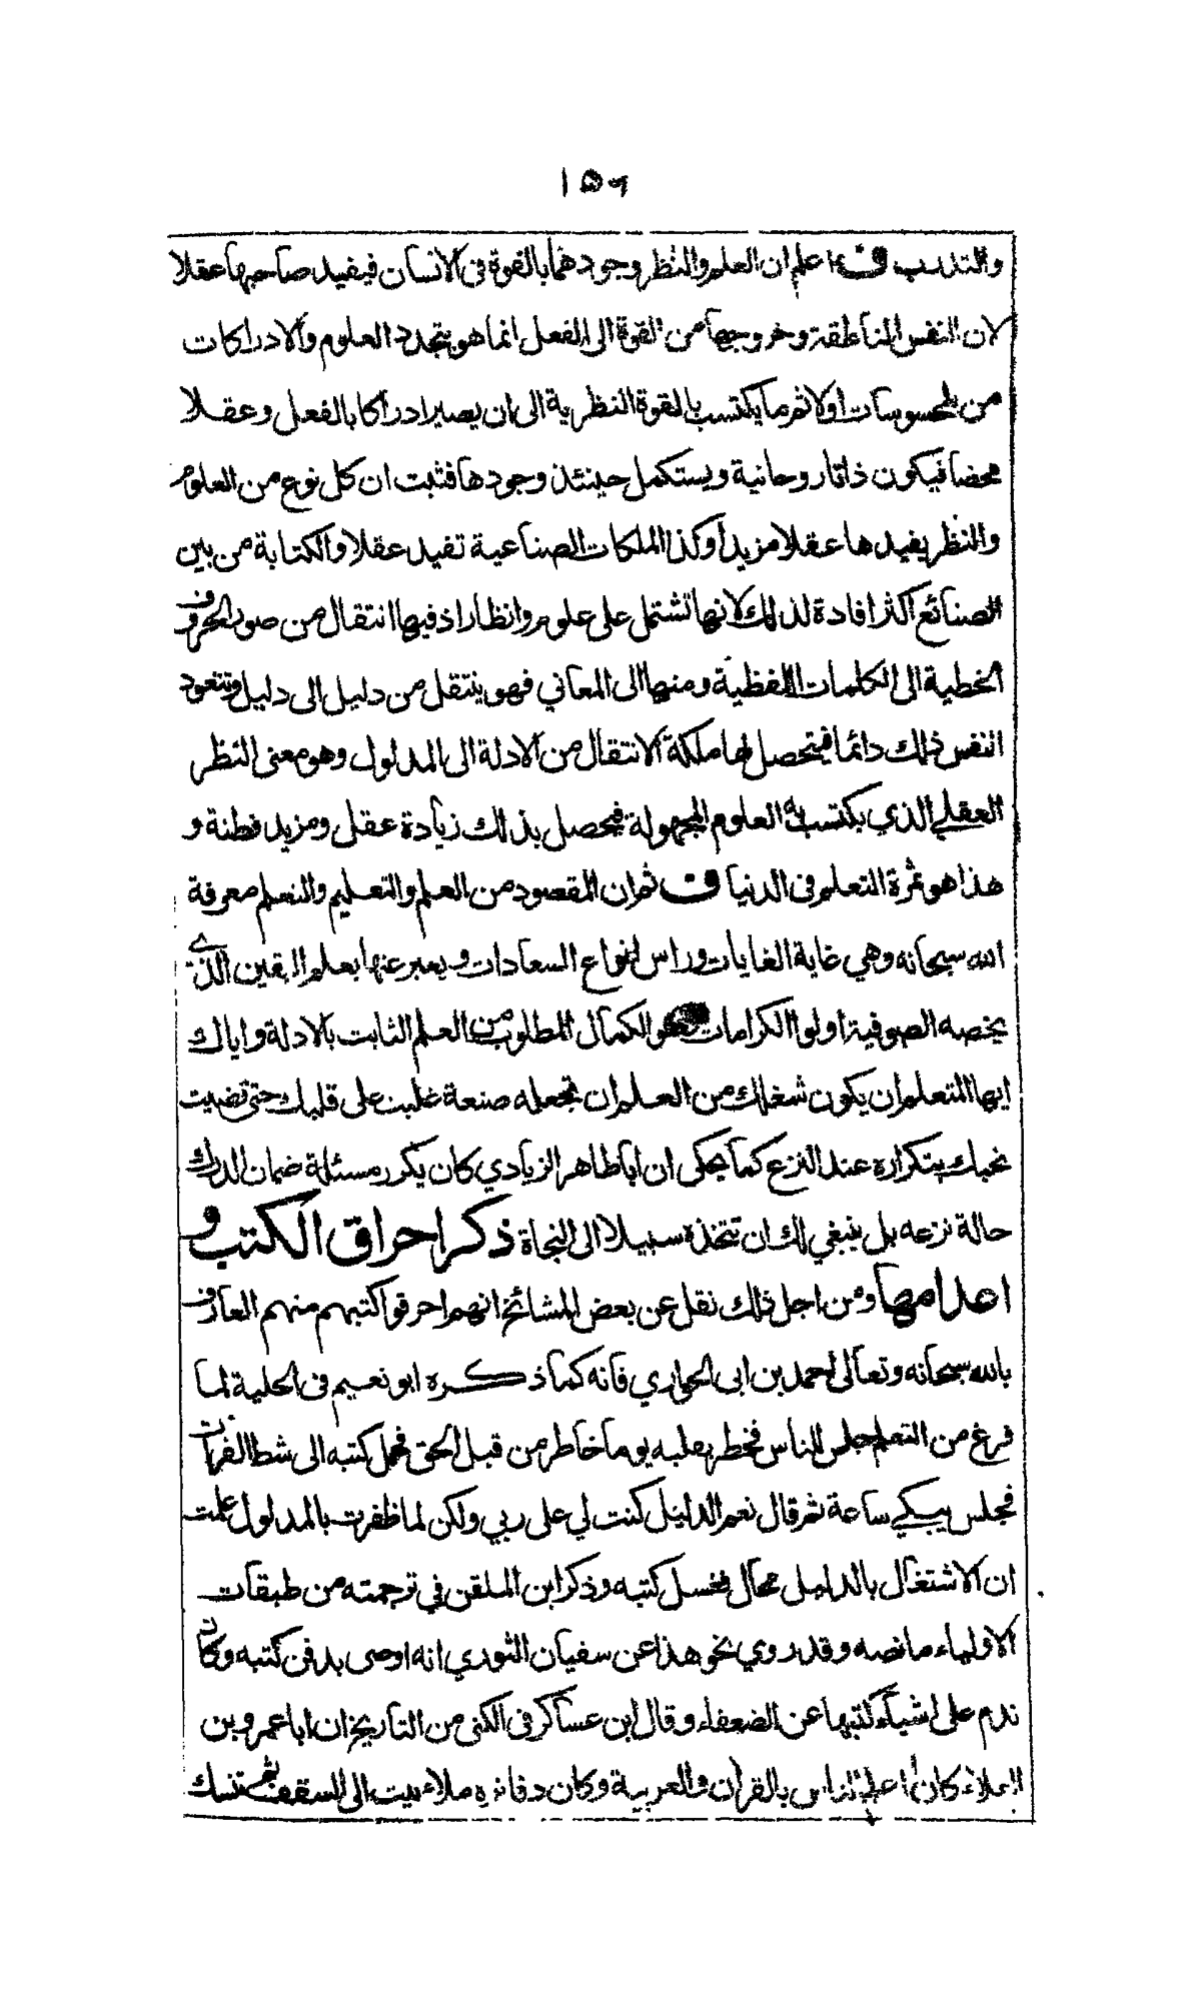 ١٥٦
والتدريب ف اعلم ان العلم والنظر وجودهما بالقوة فى الانسان فيفيد صاحبها عقلا
لان النفس الناطقة وخروجها من القوة الى الفعل انما هو بتجدد العلوم والادراكات
من المحسوسات اولا ثم ما يكتسب بالقوة النظرية الى ان يصير ادراكا بالفعل وعقلا
محضا فيكون ذاتا روحانية ويستكمل حينئذ وجودها فثبت ان كل نوع من العلوم
والنظر يفيدها عقلا مزيدا وكذا الملكات الصناعية تفيد عقلا والكتابة من بين
الصنائع اكثر افادة لذلك لانها تشتمل على علوم وانظار اذ فيها انتقال من صور الحروف
الخطية الى الكلمات اللفظية ومنها الى المعاني فهو ينتقل من دليل الى دليل وتتعود
النفس ذلك دائما فيتحصل لها ملكة الانتقال من الادلة الى المدلول وهو معنى النظر
العقلي الذي يكتسب به العلوم المجهولة فيحصل بذلك زيادة عقل ومزيد فطنة و
هذا هو ثمرة التعلم فى الدنيا ف ثم ان المقصود من العلم والتعليم والتعلم معرفة
الله سبحانه وهي غاية الغايات وراس انواع السعادات ويعبر عنها بعلم اليقين الذي
يخصه الصوفية اولوا الكرامات وهو الكمال المطلوب من العلم الثابت بالادلة واياك
ايها المتعلم ان يكون شغلك من العلم ان تجعله صنعة غلبت على قلبك حتى قضيت
نحبك بتكراره عند النزع كما يحكى ان ابا طاهر الزيادي كان يكرر مسئلة ضمان الدرك
حالة نزعه بل ينبغي لك ان تتخذه سبيلا الى النجاة ذكر احراق الكتب و
اعدامها ومن اجل ذلك نقل عن بعض المشائخ انهم احرقوا كتبهم منهم العارف
بالله سبحانه وتعالى احمد بن ابى الحواري فانه كما ذكره ابو نعيم فى الحلية لما
فرغ من التعلم جلس للناس فخطر بقلبه يوما خاطر من قبل الحق فحمل كتبه الى شط الفرات
فجلس يبكي ساعة ثم قال نعم الدليل كنت لي على ربي ولكن لما ظفرت بالمدلول علمت
ان الاشتغال بالدليل محال فغسل كتبه وذكر ابن الملقن في ترجمته من طبقات
الاولياء ما نصه وقد روي نحو هذا عن سفيان الثوري انه اوصى بدفن كتبه وكان
ندم على اشياء كتبها عن الضعفاء وقال ابن عساكر فى الكنى من التاريخ ان ابا عمرو بن
العلاء كان اعلم الناس بالقرآن والعربية وكان دفاتره ملاء بيت الى السقف ثم تنسك